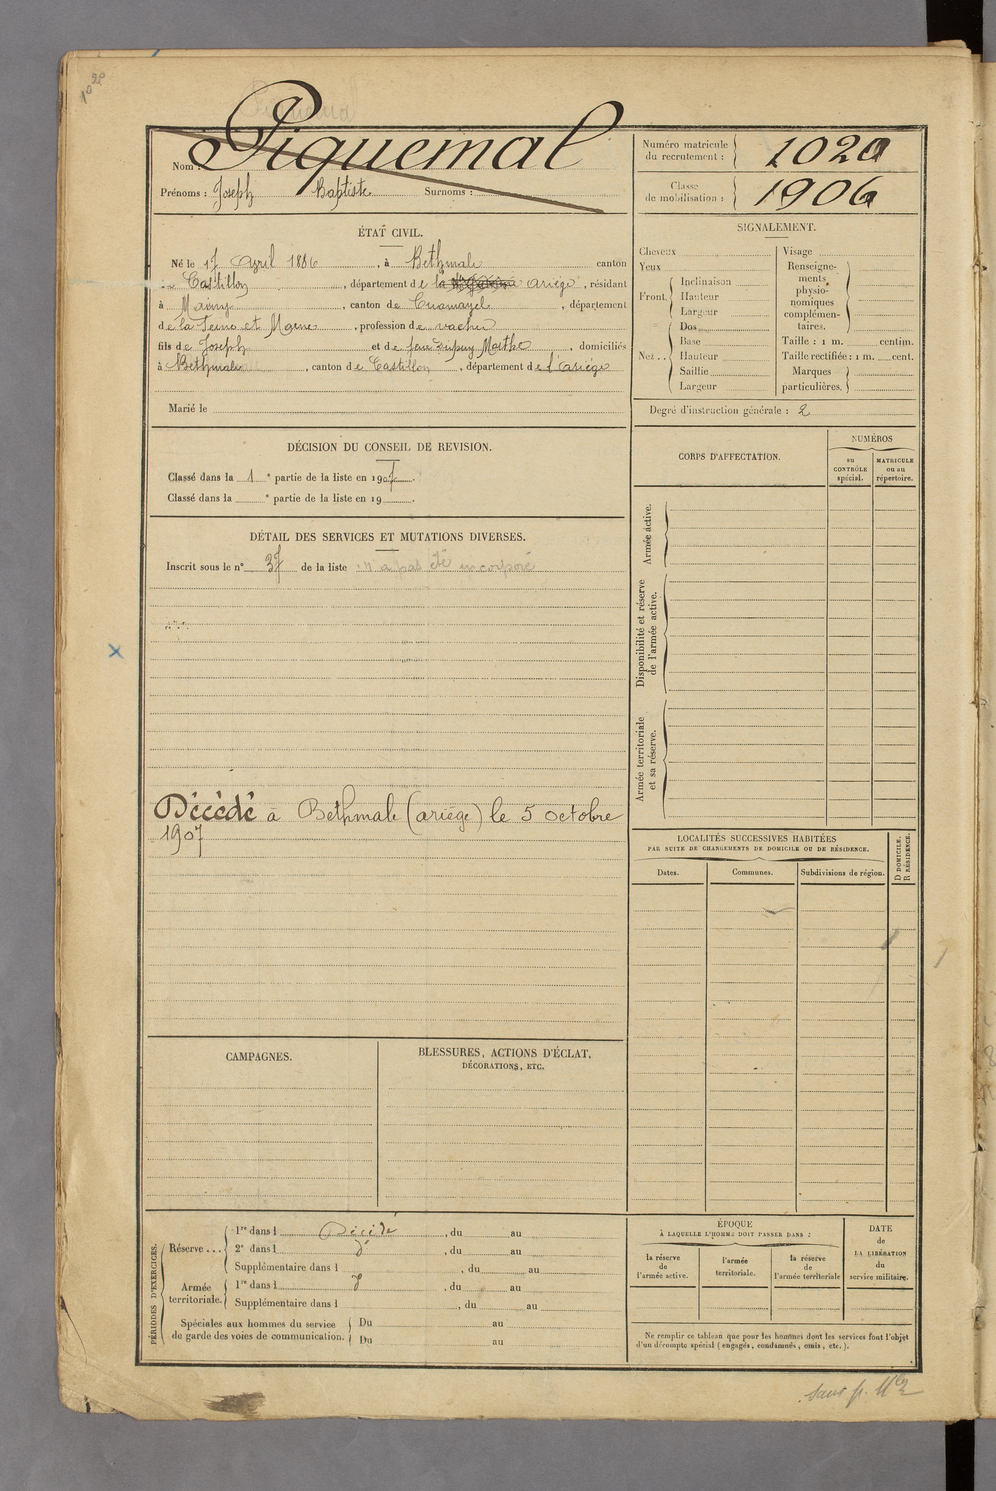 1020
Piquemal
Nom :
Prénoms : Joseph Baptiste Surnoms :
Numéro matricule du recrutement : 1020
Classe de mobilisation : 1906
ÉTAT CIVIL.
Né le 17 Avril 1886, à Bethmale canton
de Castillon, département de la Ariège, résidant
à, canton de, département
de la Seine et Marne, profession de vacher
fils de Joseph et de Dupuy Marthe, domiciliés
à Bethmale, canton de Castillon, département de l'Ariège
Marié le
SIGNALEMENT.
Cheveux
Yeux
Front. Inclinaison
Hauteur
Largeur
Nez.. Dos
Base
Hauteur
Saillie
Largeur
Visage
Renseigne-
ments
physio-
nomiques
complémen-
taires.
Taille : 1 m. centim.
Taille rectifiée : 1 m. cent.
Marques
particulières.
Degré d'instruction générale : 2
DÉCISION DU CONSEIL DE REVISION.
Classé dans la 1 e partie de la liste en 1907.
Classé dans la e partie de la liste en 19 .
DÉTAIL DES SERVICES ET MUTATIONS DIVERSES.
Inscrit sous le n° 37 de la liste n'a pas été incorporé
Décédé à Bethmale (ariège) le 5 octobre
1907
CORPS D'AFFECTATION.
NUMÉROS
au
CONTRÔLE
spécial.
MATRICULE
ou au
répertoire.
Armée active.
Disponibilité et réserve
de l'armée active.
Armée territoriale
et sa réserve.
LOCALITÉS SUCCESSIVES HABITÉES
PAR SUITE DE CHANGEMENTS DE DOMICILE OU DE RÉSIDENCE.
D DOMICILE.
R RÉSIDENCE.
Dates. Communes. Subdivisions de région.
CAMPAGNES.
BLESSURES, ACTIONS D'ÉCLAT,
DÉCORATIONS, ETC.
PÉRIODES D'EXERCICES.
Réserve... 1re dans l Décédé, du au
2e dans l d°, du au
Supplémentaire dans l, du au
Armée
territoriale. 1re dans l, du au
Supplémentaire dans l, du au
Spéciales aux hommes du service
de garde des voies de communication. Du au
Du au
ÉPOQUE
À LAQUELLE L'HOMME DOIT PASSER DANS :
la réserve
de
l'armée active.
l'armée
territoriale.
la réserve
de
l'armée territoriale
DATE
de
LA LIBÉRATION
du
service militaire.
Ne remplir ce tableau que pour les hommes dont les services font l'objet
d'un décompte spécial (engagés, condamnés, omis, etc.).